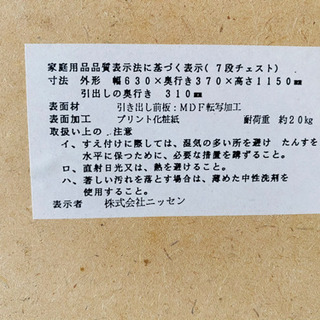 家庭用品品質表示法に基づく表示(7段チェスト)
寸法 外形 幅630×奥行き370×高さ1150㎜
引出しの奥行き 310㎜
表面材 引き出し前板:MDF転写加工
表面加工 プリント化粧紙 耐荷重 約20kg
取扱い上の注意
イ、すえ付けに際しては、湿気の多い所を避け たんすを
水平に保つために、必要な措置を講ずること。
ロ、直射日光又は、熱を避けること。
ハ、著しい汚れを落とす場合は、薄めた中性洗剤を
使用すること。
表示者 株式会社ニッセン